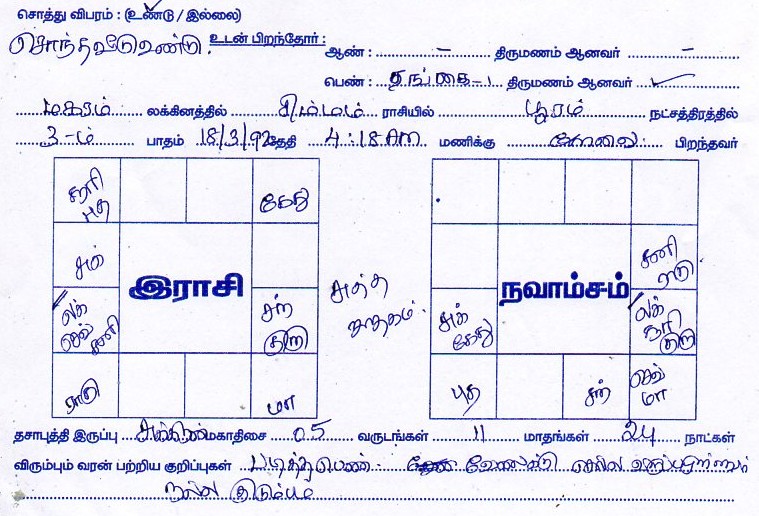 சொத்து விபரம் : (உண்டு / இல்லை)
சொந்தவீடு உண்டு. உடன் பிறந்தோர் : ஆண் : – திருமணம் ஆனவர் –
பெண் : தங்கை-1 திருமணம் ஆனவர்
மகரம் லக்கினத்தில் சிம்மம் ராசியில் பூரம் நட்சத்திரத்தில்
3-ம் பாதம் 18/3/92 தேதி 4:18 AM மணிக்கு காலை பிறந்தவர்
சூரி புத
கேது
சுக்
லக் செவ் சனி
இராசி
சந் குரு
ராகு
மா
சுத்த ஜாதகம்
சனி ராகு
சுக் கேது
நவாம்சம்
லக் சூரி குரு
புத
சந்
செவ் மா
தசாபுத்தி இருப்பு சுக்கிரன் மகாதிசை 05 வருடங்கள் 11 மாதங்கள் 24 நாட்கள்
விரும்பும் வரன் பற்றிய குறிப்புகள் படித்த பெண்
நல்ல குடும்பம்